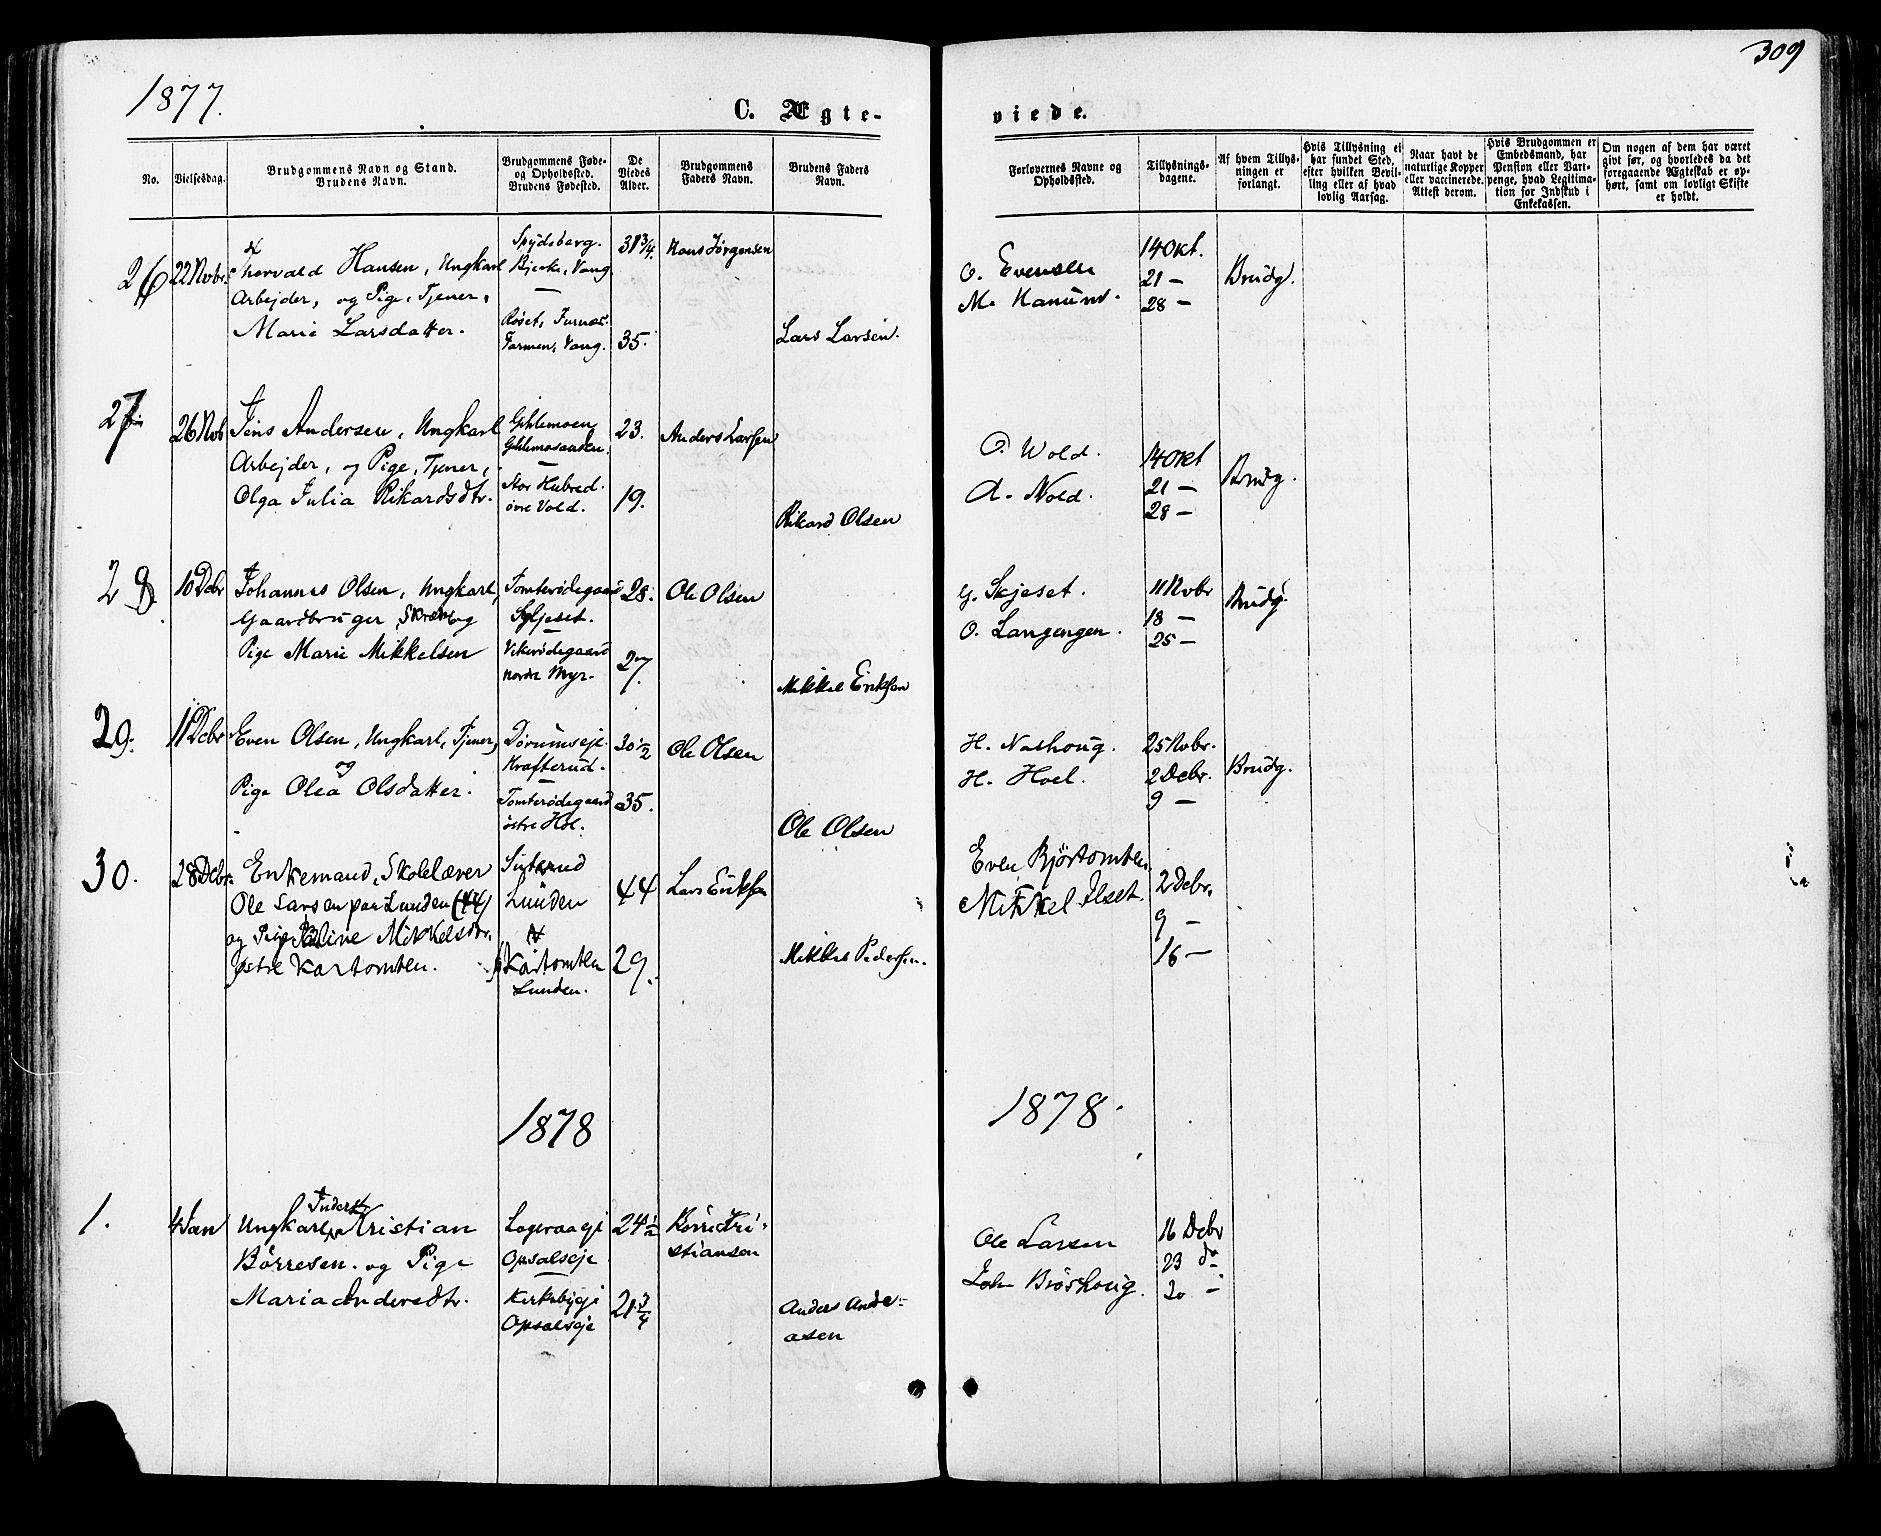 309
1877.
C. Ægte-
viede.
No.
Vielsesdag.
Brudgommens Navn og Stand.
Brudens Navn.
Brudgommens Føde-
og Opholdssted.
Brudens Fødested.
De
Viedes
Alder.
Brudgommens
Faders Navn.
Brudens Faders
Navn.
Forlovernes Navne og
Opholdssted.
Tillysnings-
dagene.
Af hvem Tillys-
ningen er
forlangt.
Hvis Tillysning ei
har fundet Sted,
efter hvilken Bevil-
ling eller af hvad
lovlig Aarsag.
Naar havt de
naturlige Kopper
eller vaccinerede.
Attest derom.
Hvis Brudgommen er
Embedsmand, har
Pension eller Vart-
penge, hvad Legitima-
tion for Indskud i
Enkekassen.
Om nogen af dem har været
givt før, og hvorledes da det
foregaaende Ægteskab er op-
hørt, samt om lovligt Skifte
er holdt.
26
22 Novbr.
Thorvald Hansen, Ungkarl
Arbejder, og Pige, Tjener,
Marie Larsdatter.
Spydeberg.
Bjerke, Vang.
Røset, Furnæs.
Farmen, Vang.
31 3/4.
35.
Hans Jørgensen
Lars Larsen.
O. Evensen
M.
14 Okt.
21 —
28 —
Brudg.
27
26 Nov
Jens Andersen, Ungkarl
Arbejder, og Pige, Tjener,
Olga Julia Rikardsdtr.
Gihlemoen
Stor Hubred.
øvre Vold.
23.
19.
Anders Larsen
Rikard Olsen
O. Wold.
A. Nold.
14 Okt
21 —
28 —
Brudg.
28.
10 Debr
Johannes Olsen, Ungkarl,
Gaardbruger, og
Pige Marie Mikkelsen
Tomterødegaard
Skjeset.
Vikerødegaard
nordre Myr.
28.
27.
Ole Olsen
Mikkel Eriksen
G. Skjeset.
O. Langengen.
11 Novbr
18 —
25 —
Brudg.
29.
11 Debr
Even Olsen, Ungkarl, Tjener,
og
Pige Olea Olsdatter.
Dørumseje.
Krafterud.
Tomterødegaard
østre Hol.
30 1/2
35.
Ole Olsen
Ole Olsen
H. Nashoug.
H. Hoel.
25 Novbr.
2 Debr.
9 —
Brudg.
30.
28 Debr.
Enkemand, Skolelærer
Ole Larsen paa Lunden (44)
og Pige Pauline Mikkelsdtr.
østre Kartomten.
Lunden
Kartomten
Lunden.
44
29.
Lars Eriksen
Mikkel Pedersen.
Even Bjørtomten
Mikkel Ilset.
2 Debr.
9 —
16 —
1878
1878.
1.
4 Jan
Inderst
Ungkarl, Kristian
Børresen. og Pige
Maria Andersdtr.
Lageraaeje
Opsalseje
Kirkebyeje
Opsalseje
24 1/2
21 3/4
Børre Kri-
stiansen
Anders Ande-
asen
Ole Larsen
Joh. Brøshoug.
16 Debr
23 do
30 —